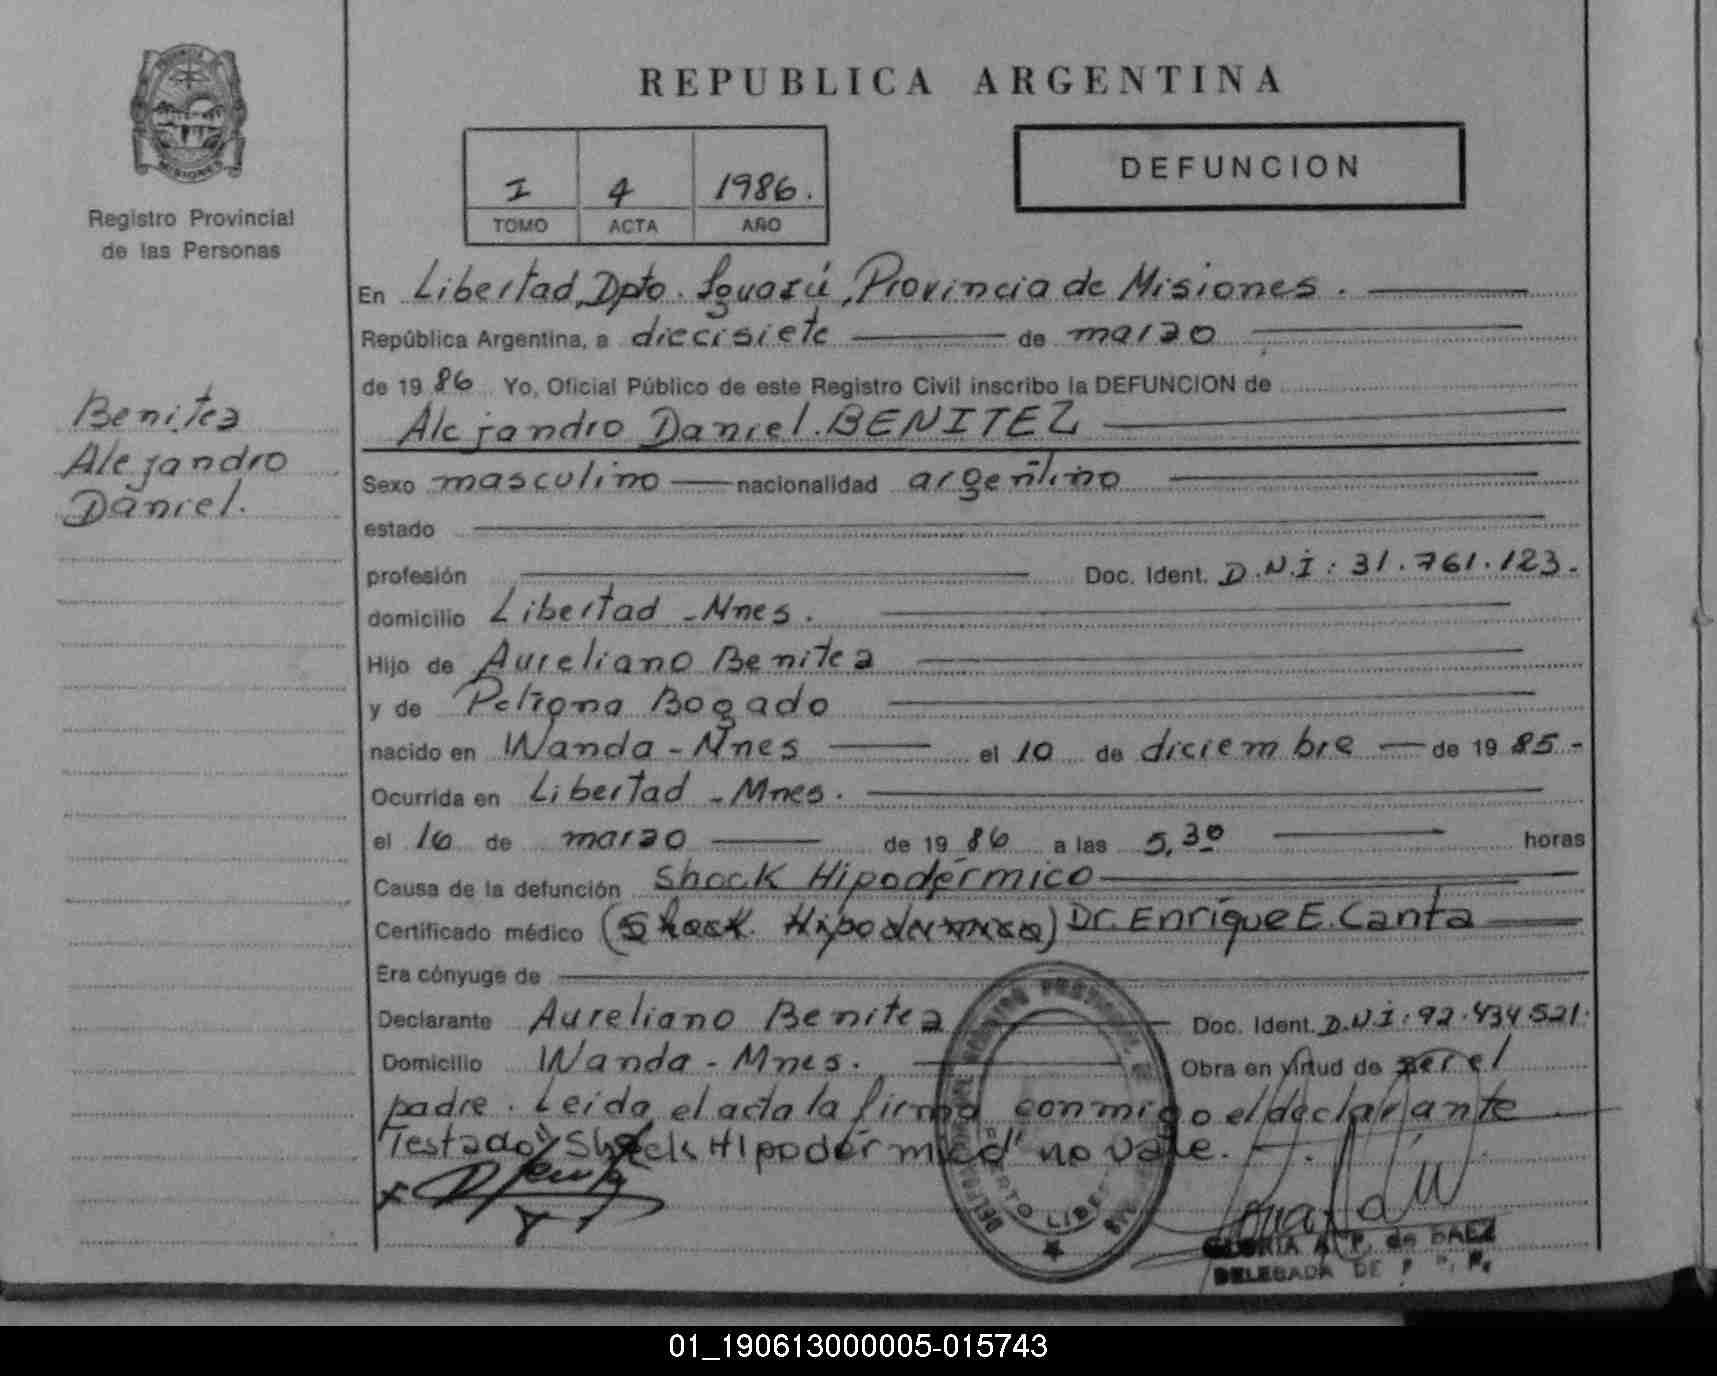 PROVINCIA DE
MISIONES
Registro Provincial
de las Personas
Benitez
Alejandro
Daniel.
REPUBLICA ARGENTINA
I 4 1986.
TOMO ACTA AÑO
DEFUNCION
En Libertad, Dpto. Iguazú, Provincia de Misiones.
República Argentina, a diecisiete de marzo
de 1986 Yo, Oficial Público de este Registro Civil inscribo la DEFUNCION de
Alejandro Daniel. BENITEZ
Sexo masculino nacionalidad argentino
estado
profesión Doc. Ident. D.N.I: 31.761.123.
domicilio Libertad - Mnes.
Hijo de Aureliano Benitez
y de Petrona Bogado
nacido en Wanda - Mnes el 10 de diciembre de 1985 -
Ocurrida en Libertad - Mnes.
el 16 de marzo de 1986 a las 5,30 horas
Causa de la defunción Shock Hipodérmico
Certificado médico (Shock Hipodermico) Dr. Enrique E. Canta
Era cónyuge de
Declarante Aureliano Benitez Doc. Ident. D.N.I: 92.434.521.
Domicilio Wanda - Mnes. Obra en virtud de ser el
padre. Leida el acta la firma conmigo el declarante
Testado "Shock Hipodérmico" no vale.
GLORIA A. P. de BAEZ
DELEGADA DE
01_190613000005-015743